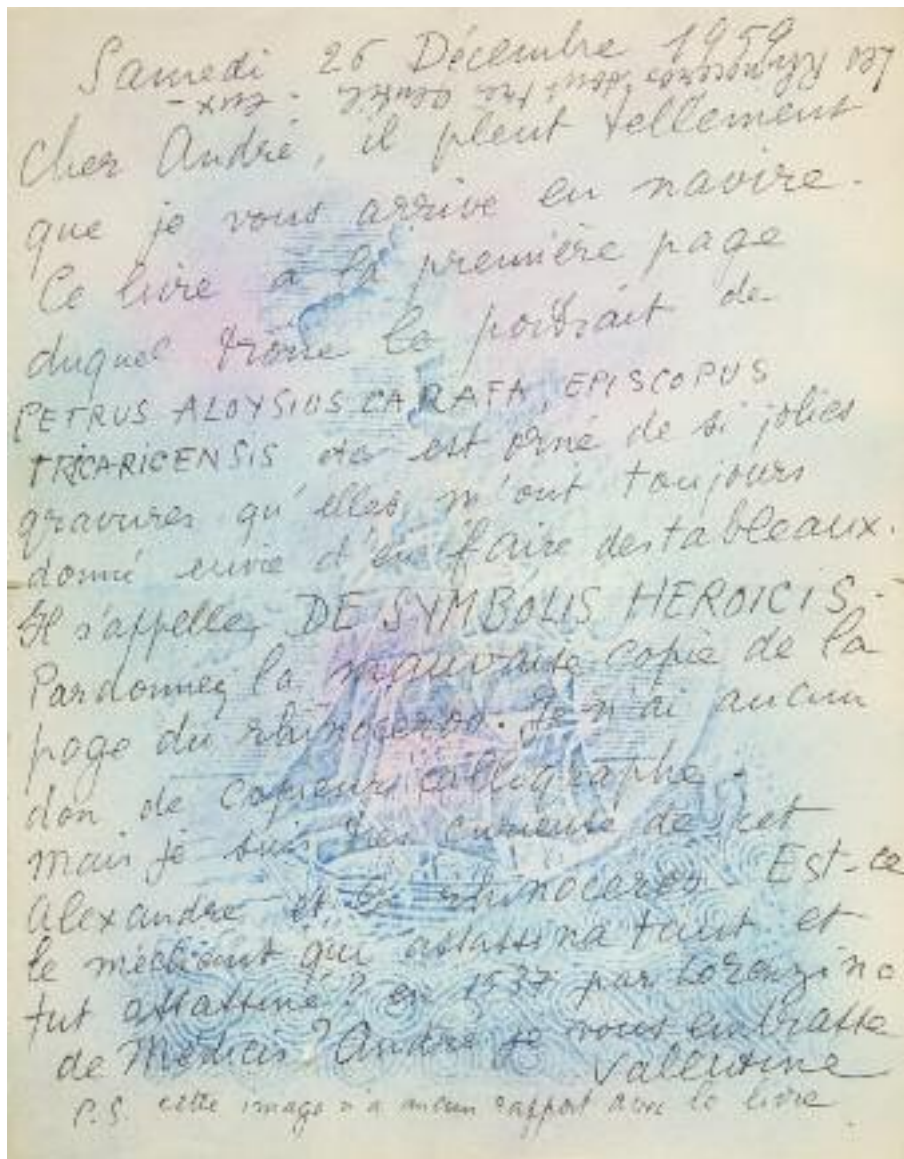 Samedi 26 Décembre 1959
Cher André, il pleut tellement
que je vous arrive en navire.
Ce livre à la première page
duquel trône le portrait de
PETRUS ALOYSIUS CARAFA, EPISCOPUS
TRICARICENSIS etc est orné de si jolies
gravures qu'elles m'ont toujours
donné envie d'en faire des tableaux.
Il s'appelle DE SYMBOLIS HEROICIS.
Pardonnez la mauvaise copie de la
page du rhinoceros. Je n'ai aucun
don de copieur calligraphe.
mais je suis très curieuse de cet
Alexandre et le rhinocéros. Est-ce
le méchant qui assassina tant et
fut assassiné? en 1537 par Lorenzino
de Médicis? André je vous embrasse
Valentine
P.S. cette image n'a aucun rapport avec le livre
Les Rhinoceros sont très gentils - eux -